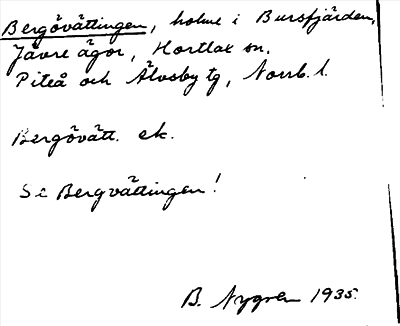 Bergövättingen, holme i Bursfjärden,
Jävre ägor, Hortlax sn.
Piteå och Älvsby tg, Norrb. l.
Bergövätt. ek.
Se Bergvättingen!
B. Nygren 1935.